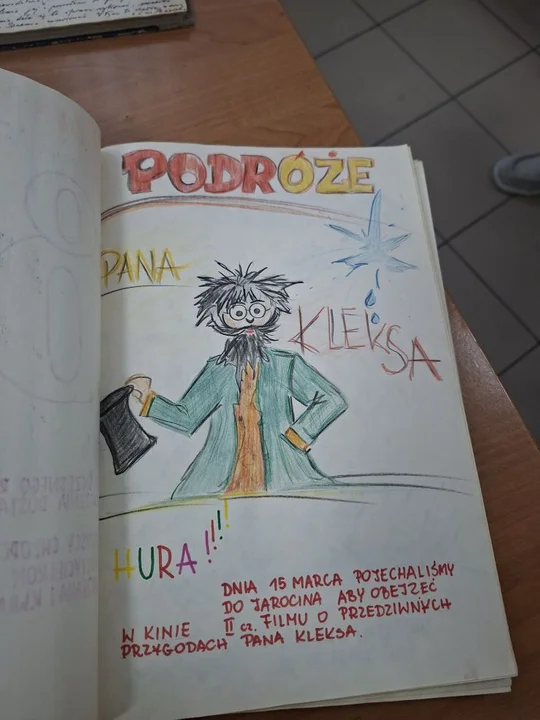 PODRÓŻE
PANA
KLEKSA
HURA!!!!
DNIA 15 MARCA POJECHALIŚMY
DO JAROCINA ABY OBEJZEĆ
W KINIE II cz. FILMU O PRZEDZIWNYCH
PRZYGODACH PANA KLEKSA.